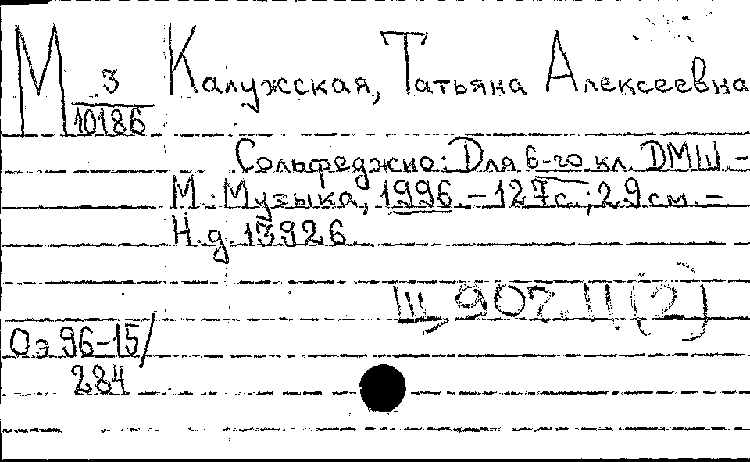 М 3/10186
Калужская, Татьяна Алексеевна
Сольфеджио: Для 6-го кл. ДМШ. -
М.: Музыка, 1996. - 127с.; 29см. -
Н.д. 13926.
Щ 907.11(2)
Оэ 96-15/
284